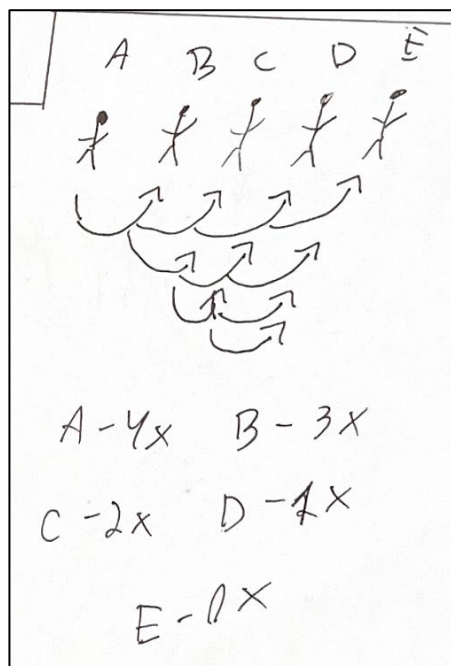 A B C D E
A - 4x B - 3x
C - 2x D - 1x
E - 0x